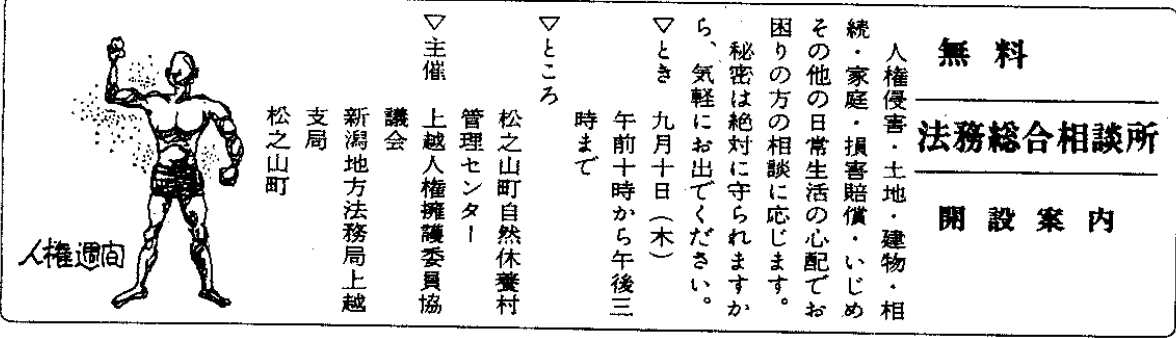 無料
法務総合相談所
開設案内
人権侵害・土地・建物・相
続・家庭・損害賠償・いじめ
その他の日常生活の心配でお
困りの方の相談に応じます。
秘密は絶対に守られますか
ら、気軽にお出でください。
▽とき　九月十日（木）
午前十時から午後三
時まで
▽ところ
松之山町自然休養村
管理センター
▽主催　上越人権擁護委員協
議会
新潟地方法務局上越
支局
松之山町
人権週間